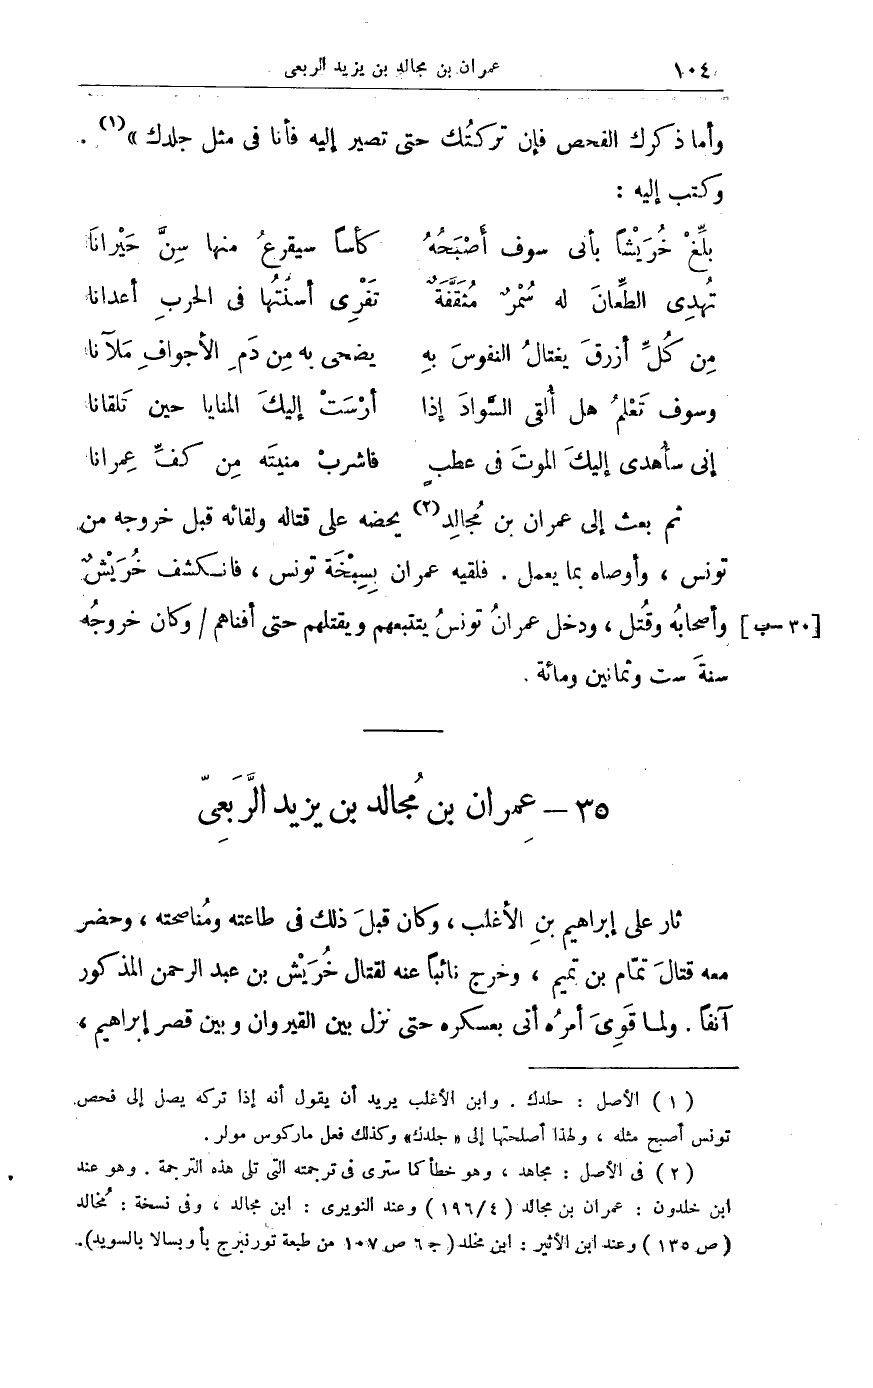 ١٠٤ عمران بن مجالد بن يزيد الربعى
وأما ذكرك الفحص فإن تركتُك حتى تصير إليه فأنا فى مثل جلدك » (١) .
وكتب إليه :
بلِّغْ خُرَيْشًا بأنى سوف أَصْبَحُهُ كأسًا سيقرعُ منها سِنَّ حَيْرانَا
تُهدِى الطِّعَانَ له سُمْرٌ مُثقَّفَةٌ تَفْرِى أسنّتُها فى الحربِ أعدانا
مِن كُلِّ أزرقَ يغتالُ النفوسَ بهِ يضحى به مِن دَمِ الأجوافِ مَلآنا
وسوف تَعْلمُ هل أُلقى السَّوادَ إذا أرْسَتْ إليكَ المنايا حين تَلقانا
إنى سأهدى إليكَ الموتَ فى عطبٍ فاشربْ منيتَه مِن كفِّ عِمرانا
ثم بعث إلى عمران بن مُجالِد (٢) يحضه على قتاله ولقائه قبل خروجه من
تونس ، وأوصاه بما يعمل . فلقيه عمران بِسِبْخَة تونس ، فانكشف خُرَيْشٌ
[٣٠ – ب] وأصحابهُ وقُتل ، ودخل عمرانُ تونسُ يتتبعهم ويقتلهم حتى أفناهم / وكان خروجُه
سنةَ ست وثمانين ومائة .
٣٥ – عِمران بن مُجالد بن يزيد الرَّبَعِىّ
ثار على إبراهيم بنِ الأغلب ، وكان قبلَ ذلك فى طاعته ومُناصحته ، وحضر
معه قتالَ تمّام بن تميم ، وخرج نائبًا عنه لقتال خُرَيْش بن عبد الرحمن المذكور
آنفًا . ولما قَوِىَ أمرُه أتى بعسكره حتى نزل بين القيروان وبين قصر إبراهيم ،
(١) الأصل : حلدك . وابن الأغلب يريد أن يقول أنه إذا تركه يصل إلى فحص
تونس أصبح مثله ، ولهذا أصلحتها إلى « جلدك» وكذلك فعل ماركوس مولر .
(٢) فى الأصل : مجاهد ، وهو خطأ كما سترى فى ترجمته التى تلى هذه الترجمة . وهو عند
ابن خلدون : عمران بن مجالد (٤/١٩٦) وعند النويرى : ابن مجالد ، وفى نسخة : مُخالد
(ص ١٣٥) وعند ابن الأثير : ابن مخلد (ج ٦ ص ١٠٧ من طبعة تورنبرج بأوبسالا بالسويد).